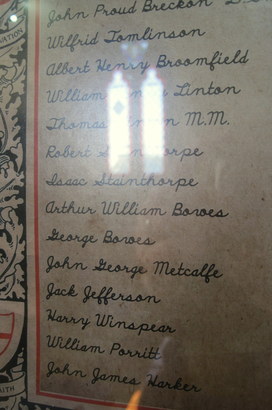 John Proud Breckon
Wilfrid Tomlinson
Albert Henry Broomfield
William Linton
Thomas M.M.
Robert
Isaac Stainthorpe
Arthur William Bowes
George Bowes
John George Metcalfe
Jack Jefferson
Harry Winspear
William Porritt
John James Harker